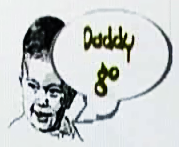 Daddy
go